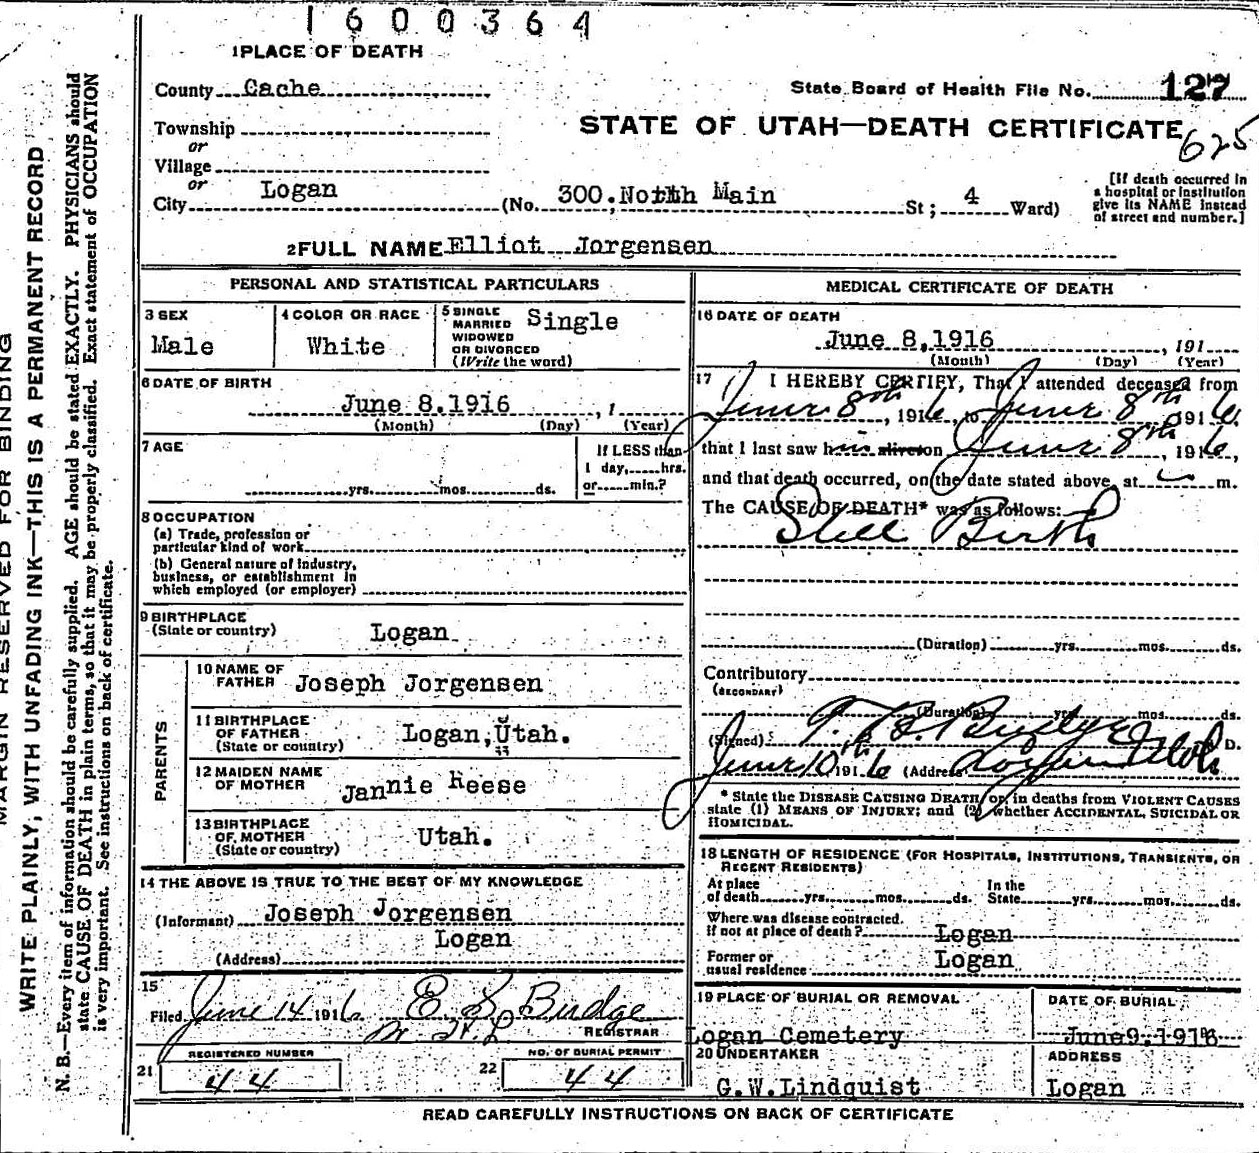 1600364
1 PLACE OF DEATH
County Cache
State Board of Health File No. 127
Township
or
Village
or
City Logan
STATE OF UTAH—DEATH CERTIFICATE
625
(No. 300 North Main St; 4 Ward)
[If death occurred in
a hospital or institution
give its NAME instead
of street and number.]
2 FULL NAME Elliot Jorgensen
PERSONAL AND STATISTICAL PARTICULARS
3 SEX
Male
4 COLOR OR RACE
White
5 SINGLE
MARRIED
WIDOWED
OR DIVORCED
(Write the word)
Single
6 DATE OF BIRTH
June 8.1916 , 1
(Month) (Day) (Year)
7 AGE
yrs. mos. ds.
If LESS than
1 day, hrs.
or min.?
8 OCCUPATION
(a) Trade, profession or
particular kind of work
(b) General nature of industry,
business, or establishment in
which employed (or employer)
9 BIRTHPLACE
(State or country) Logan
PARENTS
10 NAME OF
FATHER Joseph Jorgensen
11 BIRTHPLACE
OF FATHER
(State or country) Logan, Utah.
12 MAIDEN NAME
OF MOTHER Jannie Reese
13 BIRTHPLACE
OF MOTHER
(State or country) Utah.
14 THE ABOVE IS TRUE TO THE BEST OF MY KNOWLEDGE
(Informant) Joseph Jorgensen
Logan
(Address)
15
Filed June 14 1916 E S Budge
REGISTRAR
21 REGISTERED NUMBER
44
22 NO. OF BURIAL PERMIT
44
MEDICAL CERTIFICATE OF DEATH
16 DATE OF DEATH
June 8,1916 , 191
(Month) (Day) (Year)
17 I HEREBY CERTIFY, That I attended deceased from
June 8th, 1916, to June 8th 1916,
that I last saw him alive on June 8th, 1916,
and that death occurred, on the date stated above, at m.
The CAUSE OF DEATH* was as follows:
Still Birth
(Duration) yrs. mos. ds.
Contributory
(SECONDARY)
(Duration) yrs. mos. ds.
(Signed) Budge D.
June 10th 1916 (Address) Logan Utah
* State the DISEASE CAUSING DEATH, or, in deaths from VIOLENT CAUSES
state (1) MEANS OF INJURY; and (2) whether ACCIDENTAL, SUICIDAL OR
HOMICIDAL.
18 LENGTH OF RESIDENCE (FOR HOSPITALS, INSTITUTIONS, TRANSIENTS, OR
RECENT RESIDENTS)
At place
of death yrs. mos. ds.
In the
State yrs. mos. ds.
Where was disease contracted,
if not at place of death? Logan
Former or
usual residence Logan
19 PLACE OF BURIAL OR REMOVAL
Logan Cemetery
DATE OF BURIAL
June9.1916
20 UNDERTAKER
G.W.Lindquist
ADDRESS
Logan
READ CAREFULLY INSTRUCTIONS ON BACK OF CERTIFICATE
MARGIN RESERVED FOR BINDING
WRITE PLAINLY, WITH UNFADING INK—THIS IS A PERMANENT RECORD
N. B.—Every item of information should be carefully supplied. AGE should be stated EXACTLY. PHYSICIANS should
state CAUSE OF DEATH in plain terms, so that it may be properly classified. Exact statement of OCCUPATION
is very important. See instructions on back of certificate.